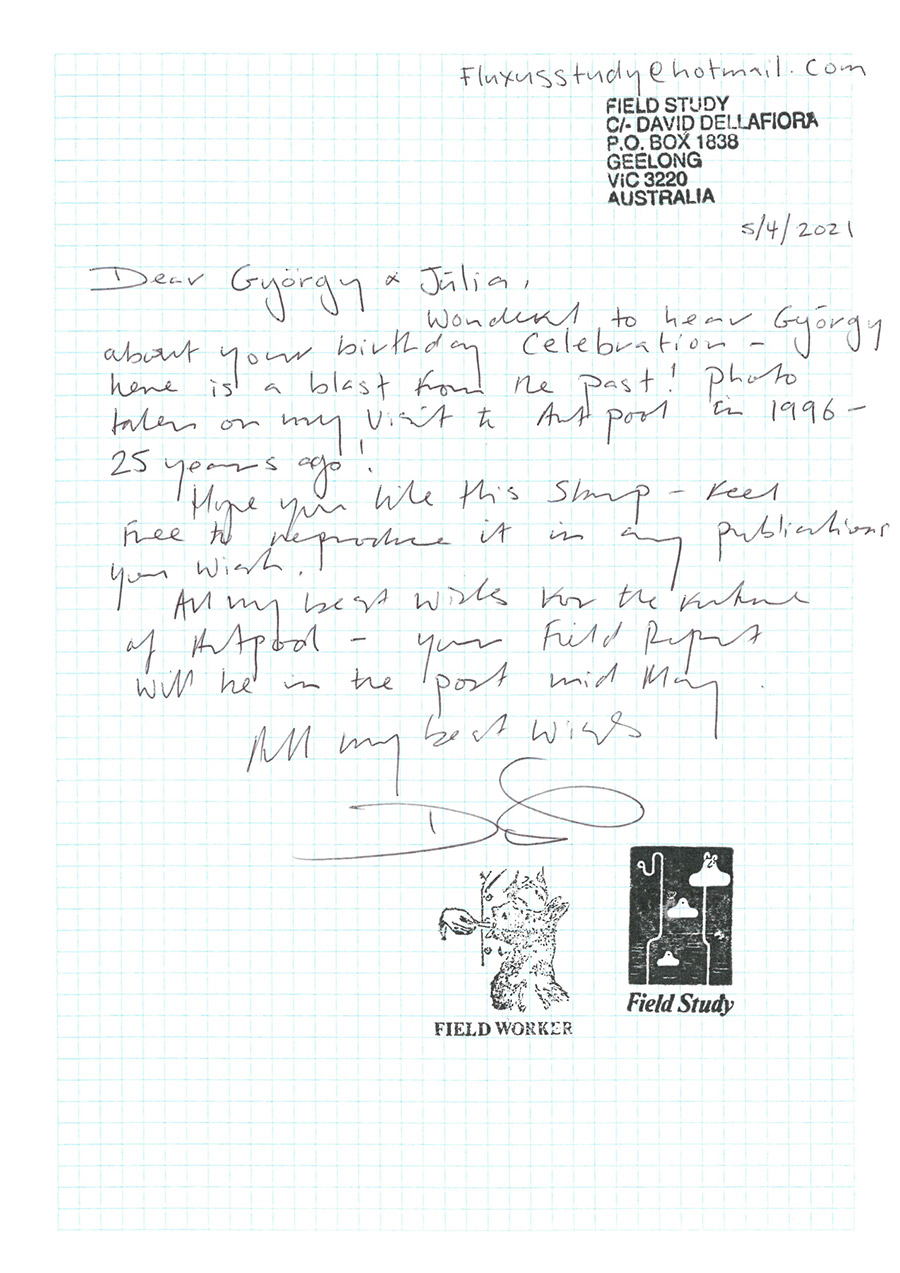 Fluxusstudy@hotmail.com
FIELD STUDY
C/- DAVID DELLAFIORA
P.O. BOX 1838
GEELONG
VIC 3220
AUSTRALIA
5/4/2021
Dear György & Júlia,
Wonderful to hear György
about your birthday Celebration - György
here is a blast from the past! photo
taken on my visit to Artpool in 1996 -
25 years ago!
Hope you like this Stamp - feel
free to reproduce it in any publications
you wish.
All my best wishes for the future
of Artpool - your Field Report
will be in the post mid May.
All my best wishes
D
FIELD WORKER
Field Study